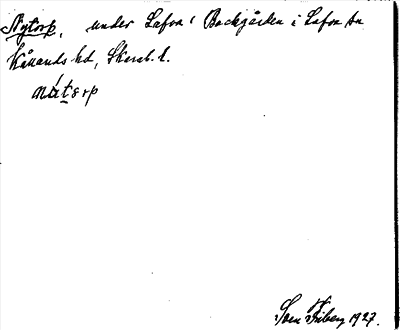 Nytorp, under Lafva Backgården i Lafva sn
Kållands hd, Skarab. l.
nʉtərp
Sven Friberg 1927.